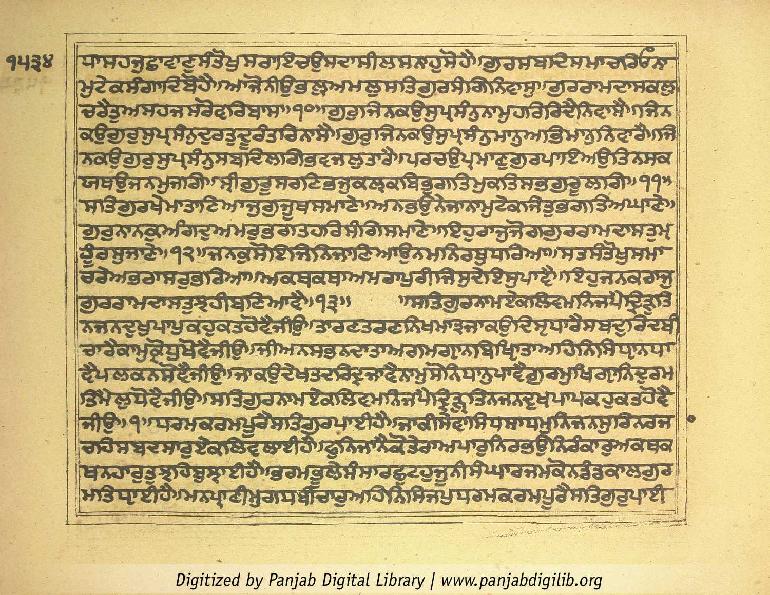 ੧੫੩੪
ਪਾਸਹਜੁਛਾਵਾਣੁਸੰਤੋਖੁਸਰਾਇਚਉਸਦਾਸੀਲਸਨਾਹੁਸੋਹੈ॥ਗੁਰਸਬਦਿਸਮਾਚਰਿਓਨਾ
ਮੁਟੇਕਸੰਗਾਦਿਬੋਹੈ॥ਅਜੋਨੀਉਭਲੁਅਮਲੁਸਤਿਗੁਰਸੰਗਿਨਿਵਾਸੁ॥ਗੁਰਰਾਮਦਾਸਕਲੁ
ਚਰੈਤੁਅਸਹਜਸਰੋਵਰਿਬਾਸ॥੧੦॥ਗੁਰੁਜਿਨਕਉਸੁਪ੍ਰਸੰਨੁਨਾਮੁਹਰਿਰਿਦੈਨਿਵਾਸੈ॥ਜਿਨ
ਕਉਗੁਰੁਸੁਪ੍ਰਸੰਨੁਦੁਰਤੁਦੂਰੰਤਰਿਨਾਸੈ॥ਗੁਰੁਜਿਨਕਉਸੁਪ੍ਰਸੰਨੁਮਾਨੁਅਭਿਮਾਨੁਨਿਵਾਰੈ॥ਜਿ
ਨਕਉਗੁਰੁਸੁਪ੍ਰਸੰਨੁਸਬਦਿਲਗਿਭਵਜਲੁਤਾਰੈ॥ਪਰਚਉਪ੍ਰਮਾਣੁਗੁਰਪਾਇਅਉਤਿਨਸਕ
ਯਥਉਜਨਮੁਜਗਿ॥ਸ੍ਰੀਗੁਰੂਸਰਣਿਭਜੁਕਲ੍ਯਕਬਿਭੁਗਤਿਮੁਕਤਿਸਭਗੁਰੂਲਗਿ॥੧੧॥
ਸਤਿਗੁਰਿਖੇਮਾਤਾਣਿਆਜੁਗਜੂਥਸਮਾਣੇ॥ਅਨਭਉਨੇਜਾਨਾਮੁਟੇਕਜਿਤੁਭਗਤਿਅਘਾਣੇ॥
ਗੁਰੁਨਾਨਕੁਅੰਗਦੁਅਮਰੁਭਗਤਹਰਿਸੰਗਿਸਮਾਣੇ॥ਇਹੁਰਾਜੁਜੋਗਗੁਰਰਾਮਦਾਸਤੁਮ੍
ਹੂਰਸੁਜਾਣੇ॥੧੨॥ਜਨਕੁਸੋਇਜਿਨਿਜਾਣਿਆਉਨਮਨਿਰਥੁਧਰਿਆ॥ਸਤੁਸੰਤੋਖੁਸਮਾ
ਚਰੇਅਭਰਾਸਰੁਭਰਿਆ॥ਅਕਥਕਥਾਅਮਰਾਪੁਰੀਜਿਸੁਦੇਇਸੁਪਾਵੈ॥ਇਹੁਜਨਕਰਾਜੁ
ਗੁਰਰਾਮਦਾਸਤੁਝਹੀਬਣਿਆਵੈ॥੧੩॥ ॥ਸਤਿਗੁਰਨਾਮਏਕਲਿਵਮਨਿਜਪੈਦ੍ਰਿੜੁਤਿ
ਨਜਨਦੁਖਪਾਪੁਕਹੁਕਤਹੋਵੈਜੀਉ॥ਤਾਰਣਤਰਣਖਿਨਮਾਤ੍ਰਜਾਕਉਦ੍ਰਿਸ੍ਟਿਧਾਰੈਸਬਦੁਰਿਦਬੀ
ਚਾਰੈਕਾਮੁਕ੍ਰੋਧੁਖੋਵੈਜੀਉ॥ਜੀਅਨਸਭਨਦਾਤਾਅਗਮਗ੍ਯਾਨਬਿਖ੍ਯਾਤਾਅਹਿਨਿਸਿਧ੍ਯਾਨਧਾ
ਵੈਪਲਕਨਸੋਵੈਜੀਉ॥ਜਾਕਉਦੇਖਤਦਰਿਦ੍ਰੁਜਾਵੈਨਾਮੁਸੋਨਿਧਾਨੁਪਾਵੈਗੁਰਮੁਖਿਗ੍ਯਾਨਿਦੁਰਮ
ਤਿਮੈਲੁਧੋਵੈਜੀਉ॥ਸਤਿਗੁਰਨਾਮਏਕਲਿਵਮਨਿਜਪੈਦ੍ਰਿੜੁਤਿਨਜਨਦੁਖਪਾਪਕਹੁਕਤਹੋਵੈ
ਜੀਉ॥੧॥ਧਰਮਕਰਮਪੂਰੈਸਤਿਗੁਰਪਾਈਹੈ॥ਜਾਕੀਸੇਵਾਸਿਧਸਾਧਮੁਨਿਜਨਸੁਰਿਨਰਜਾ
ਚਹਿਸਬਦਸਾਰੁਏਕਲਿਵਲਾਈਹੈ॥ਫੁਨਿਜਾਨੈਕੋਤੇਰਾਅਪਾਰੁਨਿਰਭਉਨਿਰੰਕਾਰੁਅਕਥਕ
ਥਨਹਾਰੁਤੁਝਹਿਬੁਝਾਈਹੈ॥ਭਰਮਭੂਲੇਸੰਸਾਰਛੁਟਹੁਜੂਨੀਸੰਘਾਰਜਮਕੋਨਡੰਡਕਾਲਗੁਰ
ਮਤਿਧ੍ਯਾਈਹੈ॥ਮਨਪ੍ਰਾਣੀਮੁਗਧਬੀਚਾਰੁਅਹਿਨਿਸਿਜਪੁਧਰਮਕਰਮਪੂਰੈਸਤਿਗੁਰੁਪਾਈ
Digitized by Panjab Digital Library | www.panjabdigilib.org